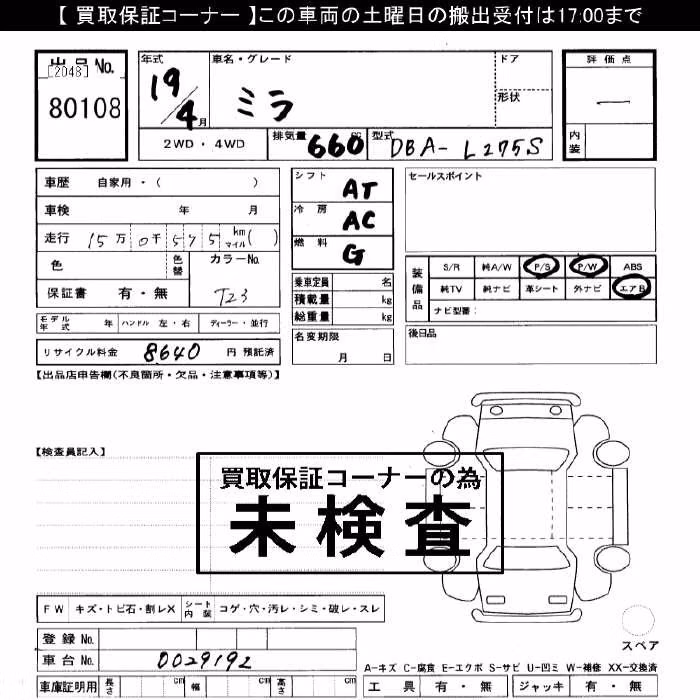 【 買取保証コーナー 】この車両の土曜日の搬出受付は17:00まで
出品 No.
[2048]
80108
年式
19/4月
車名・グレード
ミラ
ドア
形状
評価点
—
内装
2WD・4WD
排気量 660 cc
型式 DBA-L275S
車歴 自家用・( )
車検 年 月
走行 15万0千575 km マイル( )
色
色替
カラーNo.
T23
保証書 有・無
シフト AT
冷房 AC
燃料 G
乗車定員 名
積載量 kg
総重量 kg
セールスポイント
装備品
S/R 純A/W P/S P/W ABS
純TV 純ナビ 革シート 外ナビ エアB
ナビ型番:
モデル年式 年 ハンドル 左・右 ディーラー・並行
名変期限
月 日
後日品
リサイクル料金 8640 円 預託済
【出品店申告欄(不良箇所・欠品・注意事項等)】
【検査員記入】
買取保証コーナーの為
未検査
FW キズ・トビ石・割レX シート内装 コゲ・穴・汚レ・シミ・破レ・スレ
登録 No.
車台 No. 0029192
スペア
A-キズ C-腐食 E-エクボ S-サビ U-凹ミ W-補修 XX-交換済
車庫証明用 長さ cm 幅 cm 高さ cm
工具 有・無 ジャッキ 有・無